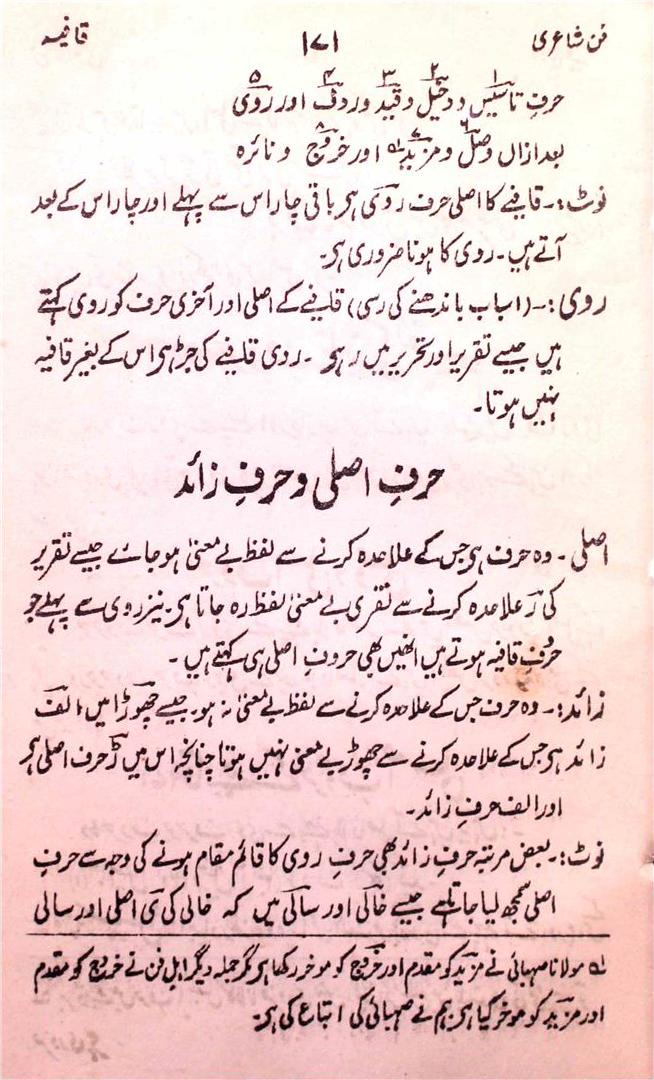 فن شاعری ۱۷۱ قافیہ
حرفِ تاسیس و دخیل و قید و ردف اور روی
بعدازاں وصل و مزید اور خروج و نائرہ
نوٹ:۔ قافیے کا اصلی حرف روی ہی باقی چار اس سے پہلے اور چار اس کے بعد
آتے ہیں۔ روی کا ہونا ضروری ہی۔
روی:۔ (اسباب باندھنے کی رسی) قافیے کے اصلی اور آخری حرف کو روی کہتے
ہیں جیسے تقریر اور تحریر میں ر ہی۔ روی قافیے کی جڑ ہی اس کے بغیر قافیہ
نہیں ہوتا۔
حرفِ اصلی و حرفِ زائد
اصلی۔ وہ حرف ہی جس کے علاحدہ کرنے سے لفظ بے معنیٰ ہو جاے جیسے تقریر
کی ر علاحدہ کرنے سے تقری بے معنیٰ لفظ رہ جاتا ہی۔ نیز روی سے پہلے جو
حروفِ قافیہ ہوتے ہیں انھیں بھی حروفِ اصلی ہی کہتے ہیں۔
زائد:۔ وہ حرف جس کے علاحدہ کرنے سے لفظ بے معنیٰ نہ ہو۔ جیسے چھوڑا میں الف
زائد ہی جس کے علاحدہ کرنے سے چھوڑ بے معنی نہیں ہوتا چنانچہ اس میں ڑ حرف اصلی ہی
اور الف حرفِ زائد۔
نوٹ:۔ بعض مرتبہ حرفِ زائد بھی حرفِ روی کا قائم مقام ہونے کی وجہ سے حرفِ
اصلی سمجھ لیا جاتا ہے جیسے خالی اور سالی میں کہ خالی کی ی اصلی اور سالی
لہ مولانا صہبائی نے مزید کو مقدم اور خروج کو موخر رکھا ہی مگر جملہ دیگر اہلِ فن نے خروج کو مقدم
اور مزید کو موخر کیا ہی۔ ہم نے صہبائی کی اتباع کی ہی۔